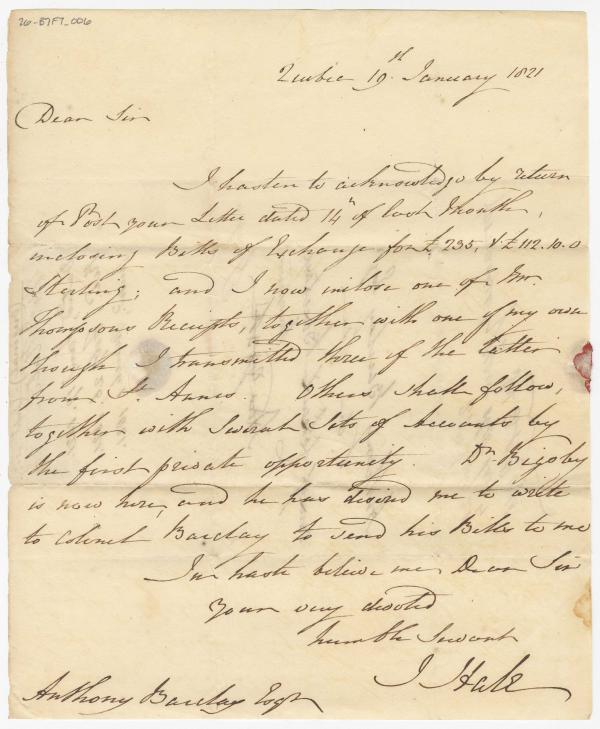 26-E7F7_006
Quebec 19th January 1821
Dear Sir
I hasten to acknowledge by return
of Post your Letter dated 14th of last Month,
inclosing Bills of Exchange for £235, & £112.10.0
Sterling; and I now inclose one of Mr.
Thompsons Receipts, together with one of my own
though I transmitted three of the latter
from St. Annes. Others shall follow,
together with Several Sets of Accounts by
the first private opportunity. Dr. Bigsby
is now here, and he has desired me to write
to Colonel Barclay to send his Bills to me
In haste believe me Dear Sir
your very devoted
humble Servant
J Hale
Anthony Barclay Esqr